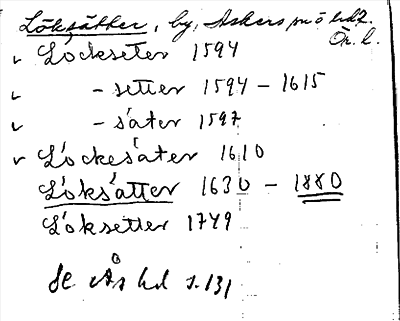 Löksätter, by, Askers sn ö hd.
Ör. l.
✓ Lockseter 1594
✓ - setter 1594 - 1615
✓ - säter 1597
✓ Löckesäter 1610
Löksätter 1630 - 1880
Löksetter 1749
se Ås hd s. 131